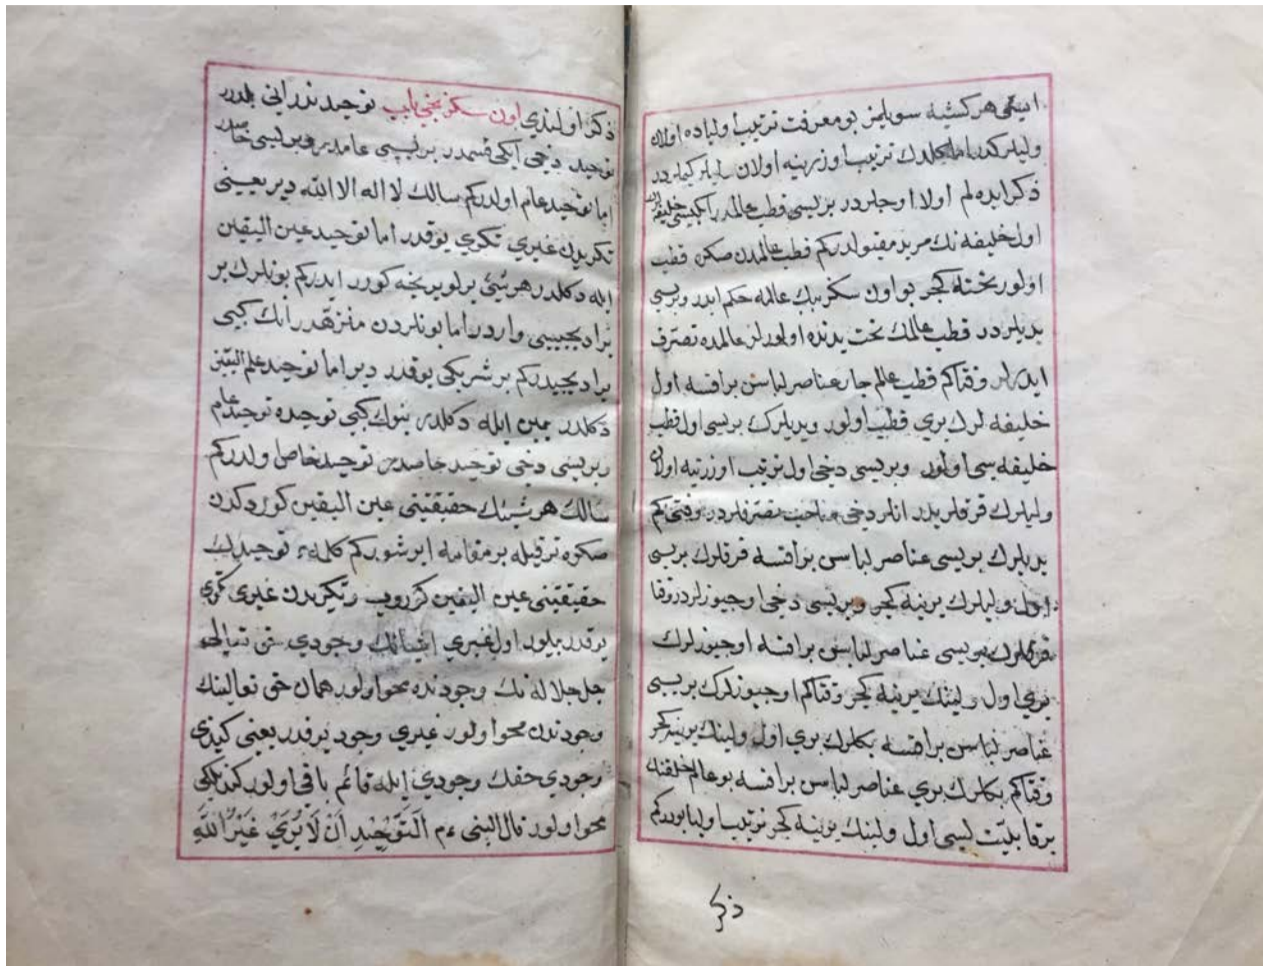 ايمدى هر كشيه سويلمز بو معرفت ترتيب اولياده اولان
وليلر كدر اما بونلردك ترتيب اوزرينه اولان وليلر كيملردر
ذكر ايده لم اولا اوجلردر بريسى قطب عالمدر ايكيسى خليفه لردر
اول خليفه نك مريد مقبولدركم قطب عالمدن صكره قطب
اولور تخته كجر بو اون سكز بيك عالمه حكم ايدر وبريسى
يديلردر قطب عالمك تحت يدنده اولورلر عالمده تصرف
ايدرلر وقتاكم قطب عالم جار عناصر لباسن براقسه اول
خليفه لرك برى قطب اولور ويديلرك بريسى اول قطب
خليفه سى اولور وبريسى دخى اول ترتيب اوزرينه اولان
وليلرك قرقلريدر انلر دخى صاحب تصرفلردر وقتى كم
يديلرك بريسى عناصر لباسن براقسه قرقلرك بريسى
اول وليلرك يرينه كجر وبريسى دخى اوجيوزلردر وقتا
قرقلرك بريسى عناصر لباسن براقسه اوجيوزلرك
برى اول ولينك يرينه كجر وقتاكم اوجيوزلرك بريسى
عناصر لباسن براقسه بكلرك برى اول ولينك يرينه كجر
وقتاكم بكلرك برى عناصر لباسن براقسه بو عالم خلقنك
بر قابليت ليسى اول ولينك يرينه كجر ترتيب اوليا بودركم
ذكر
ذكر اولندي اون سكزنجى باب توحيد ندر انى بلدرر
توحيد دخى ايكى قسمدر بريسى عامدر وبريسى خاصدر
اما توحيد عام اولدركم سالك لا اله الا الله دير يعينى
تكريدن غيرى تكرى يوقدر اما توحيد عين اليقين
ايله دكلدر هر شيئى يرلو يرنجه كورر ايدركم بونلرك بر
براديجيسى واردر اما بونلردن منزهدر انك كبى
براديجيدركم بر شريكى يوقدر دير اما توحيد علم اليقين
دكلدر يمين ايله دكلدر بنوك كبى توحيده توحيد عام
وبريسى دخى توحيد خاصدر توحيد خاص اولدركم
سالك هر شيئك حقيقتنى عين اليقين كوردكدن
صكره ترقيله بر مقامه ايرشوركم كلمهء توحيدك
حقيقتنى عين اليقين كوروب وتكريدن غيرى تكرى
يوقدر بيلور اول غيرى اشيانك وجودى حق تعالى
جل جلاله نك وجودنده محو اولور همان حق تعالينك
وجودندن محو اولور غيرى وجود يوقدر يعنى كندى
وجودى حقك وجودى ايله قائم باقى اولور كنديلكى
محو اولور قال النبى ءم اَلتَّوْحِيد اَنْ لَا يُرَىَ غَيْرُ اللّٰهِ